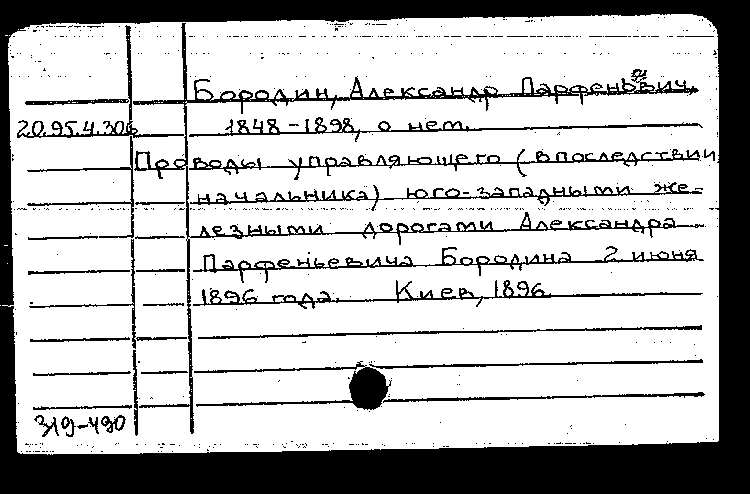 Бородин, Александр Парфеньевич,
20.95.4.306 1848-1898, о нем.
Проводы управляющего (впоследствии
начальника) юго-западными же-
лезными дорогами Александра
Парфеньевича Бородина 2 июня
1896 года. Киев, 1896
319-490